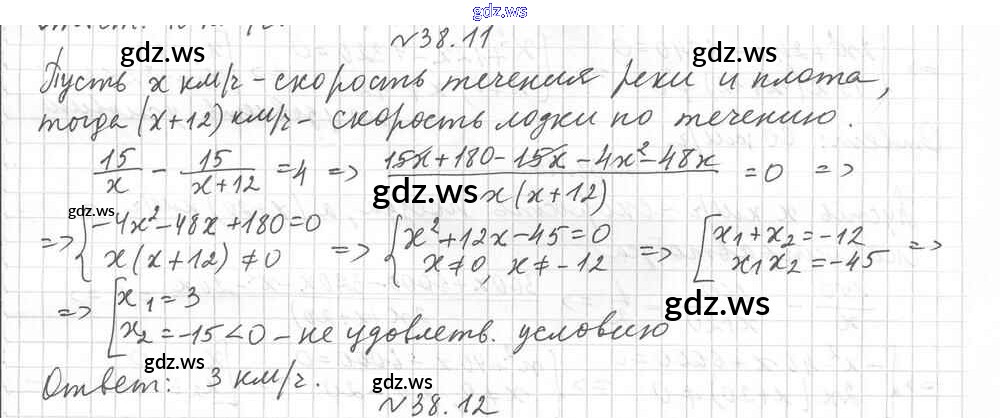 gdz.ws
№38.11
gdz.ws gdz.ws
Пусть x км/ч - скорость течения реки и плота,
тогда (x+12) км/ч - скорость лодки по течению.
15/x - 15/(x+12) = 4 => (15x+180-15x-4x²-48x)/(x(x+12)) = 0 =>
gdz.ws
gdz.ws
=> { -4x²-48x+180=0 => { x²+12x-45=0 => [ x₁+x₂=-12 =>
x(x+12)≠0 x≠0, x≠-12 x₁x₂=-45
gdz.ws
=> [ x₁=3
x₂=-15<0 - не удовлетв. условию
gdz.ws
Ответ: 3 км/ч.
gdz.ws
№38.12